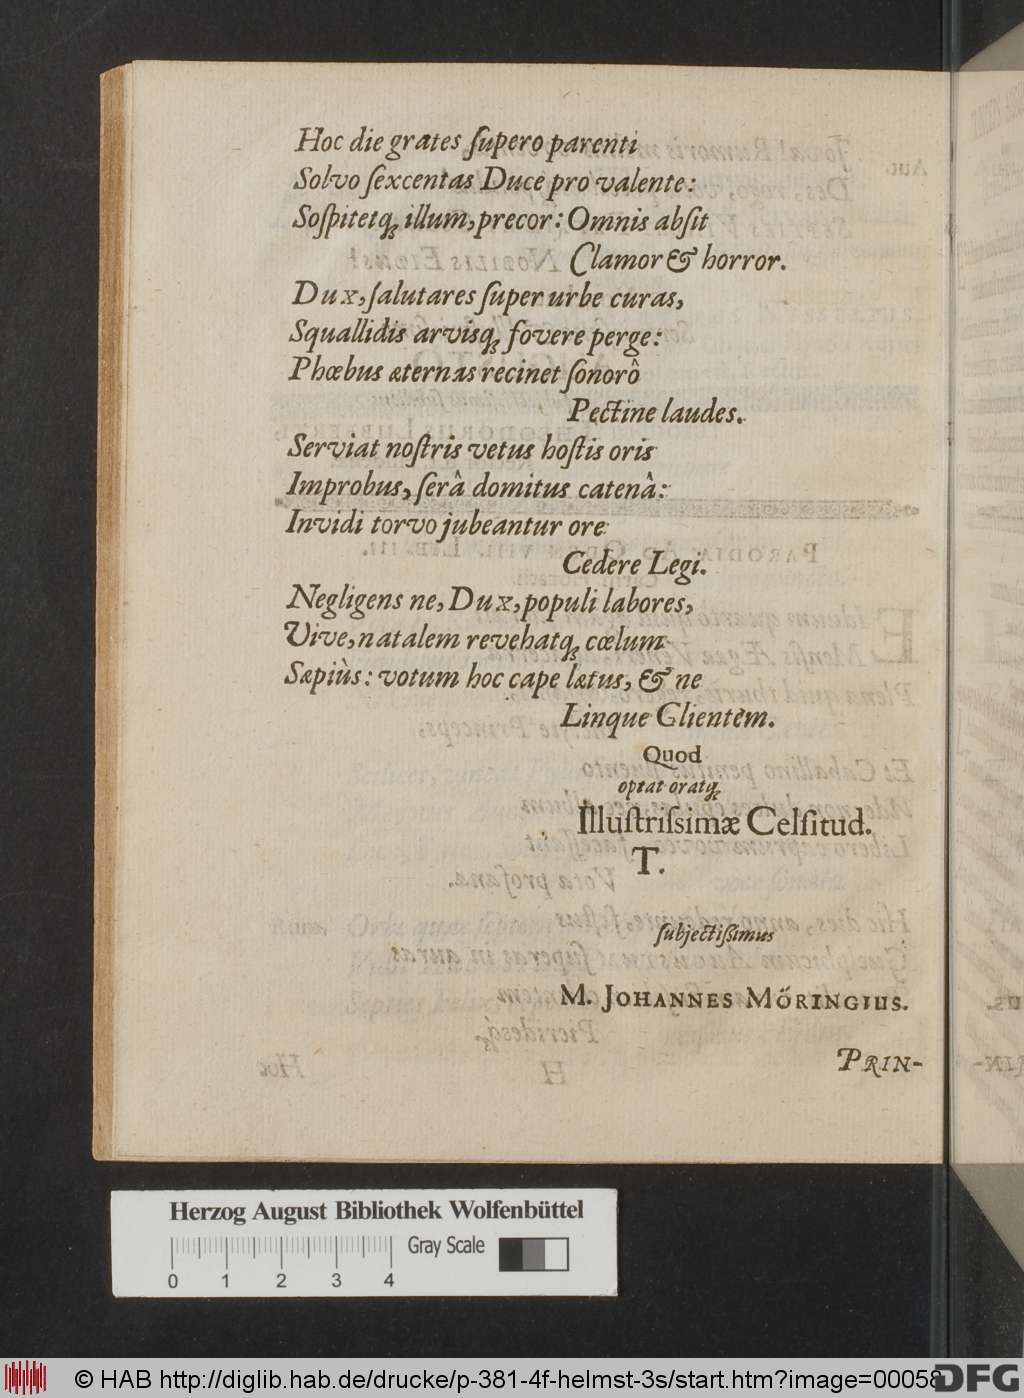 Hoc die grates ſupero parenti
Solvo ſexcentas Duce pro valente:
Soſpitetq́; illum, precor: Omnis abſit
Clamor & horror.
Dux, ſalutares ſuper urbe curas,
Squallidis arvisq́; fovere perge:
Phœbus æternas recinet ſonorô
Pectine laudes.
Serviat noſtris vetus hoſtis oris
Improbus, ſerâ domitus catenâ:
Invidi torvo jubeantur ore
Cedere Legi.
Negligens ne, Dux, populi labores,
Vive, natalem revehatq́; cœlum
Sæpiùs: votum hoc cape lætus, & ne
Linque Clientem.
Quod
optat oratq́;
Illuſtriſsimæ Celſitud.
T.
ſubjectiſſimus
M. Johannes Möringius.
Prin-
Herzog August Bibliothek Wolfenbüttel
Gray Scale
0 1 2 3 4
© HAB http://diglib.hab.de/drucke/p-381-4f-helmst-3s/start.htm?image=00058
DFG